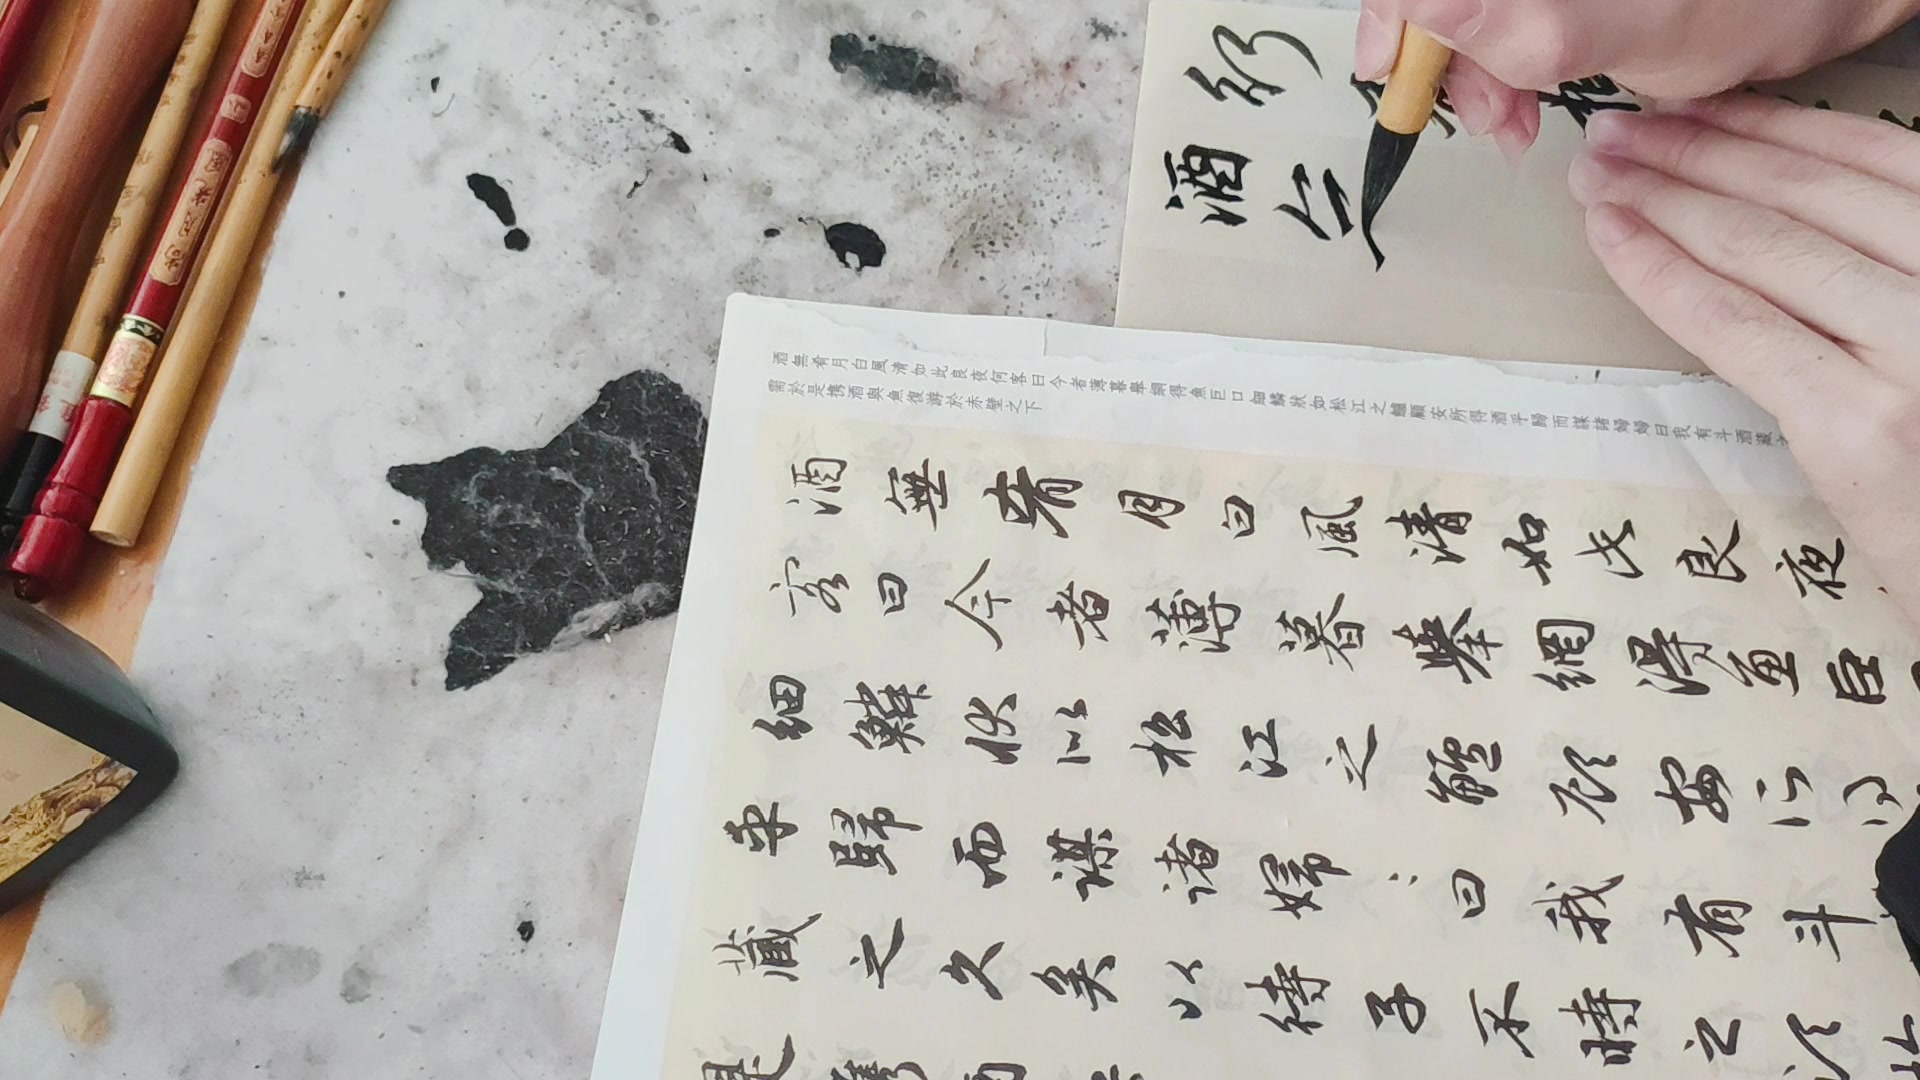 酒
酒無肴月白風清如此良夜何客曰今者薄暮舉網得魚巨口細鱗狀如松江之鱸顧安所得酒乎歸而謀諸婦婦曰我有斗酒藏
需於是携酒與魚復游於赤壁之下
酒無肴月白風清如此良夜
客曰今者薄暮舉網得魚巨
細鱗狀似松江之鱸顧安所得
乎歸而謀諸婦〻曰我有斗
藏之久矣以待子不時之須
是携